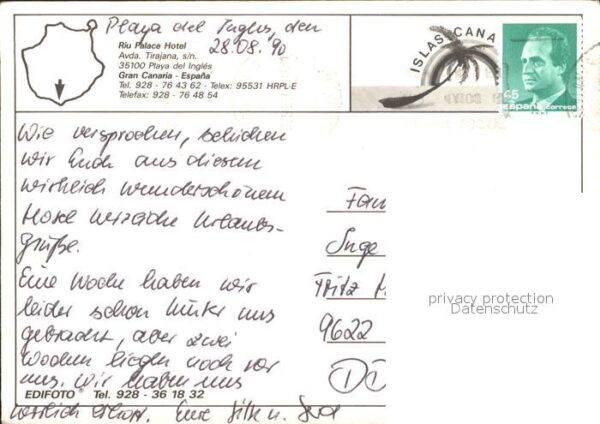 Playa del Ingles, den
28.08.90
Riu Palace Hotel
Avda. Tirajana, s/n.
35100 Playa del Inglés
Gran Canaria - España
Tel. 928 - 76 43 62 - Telex: 95531 HRPL-E
Telefax: 928 - 76 48 54
ISLAS CANA
45
España correos
Wie versprochen, schicken
wir Euch aus diesem
wirklich wunderschönen
Hotel herzliche Urlaubs-
grüße.
Eine Woche haben wir
leider schon hinter uns
gebracht, aber zwei
Wochen liegen noch vor
uns. Wir haben uns
wirklich erholt. Eure Silke u.
Fam
Inge
Fritz
9622
DD
privacy protection
Datenschutz
EDIFOTO® Tel. 928 - 36 18 32